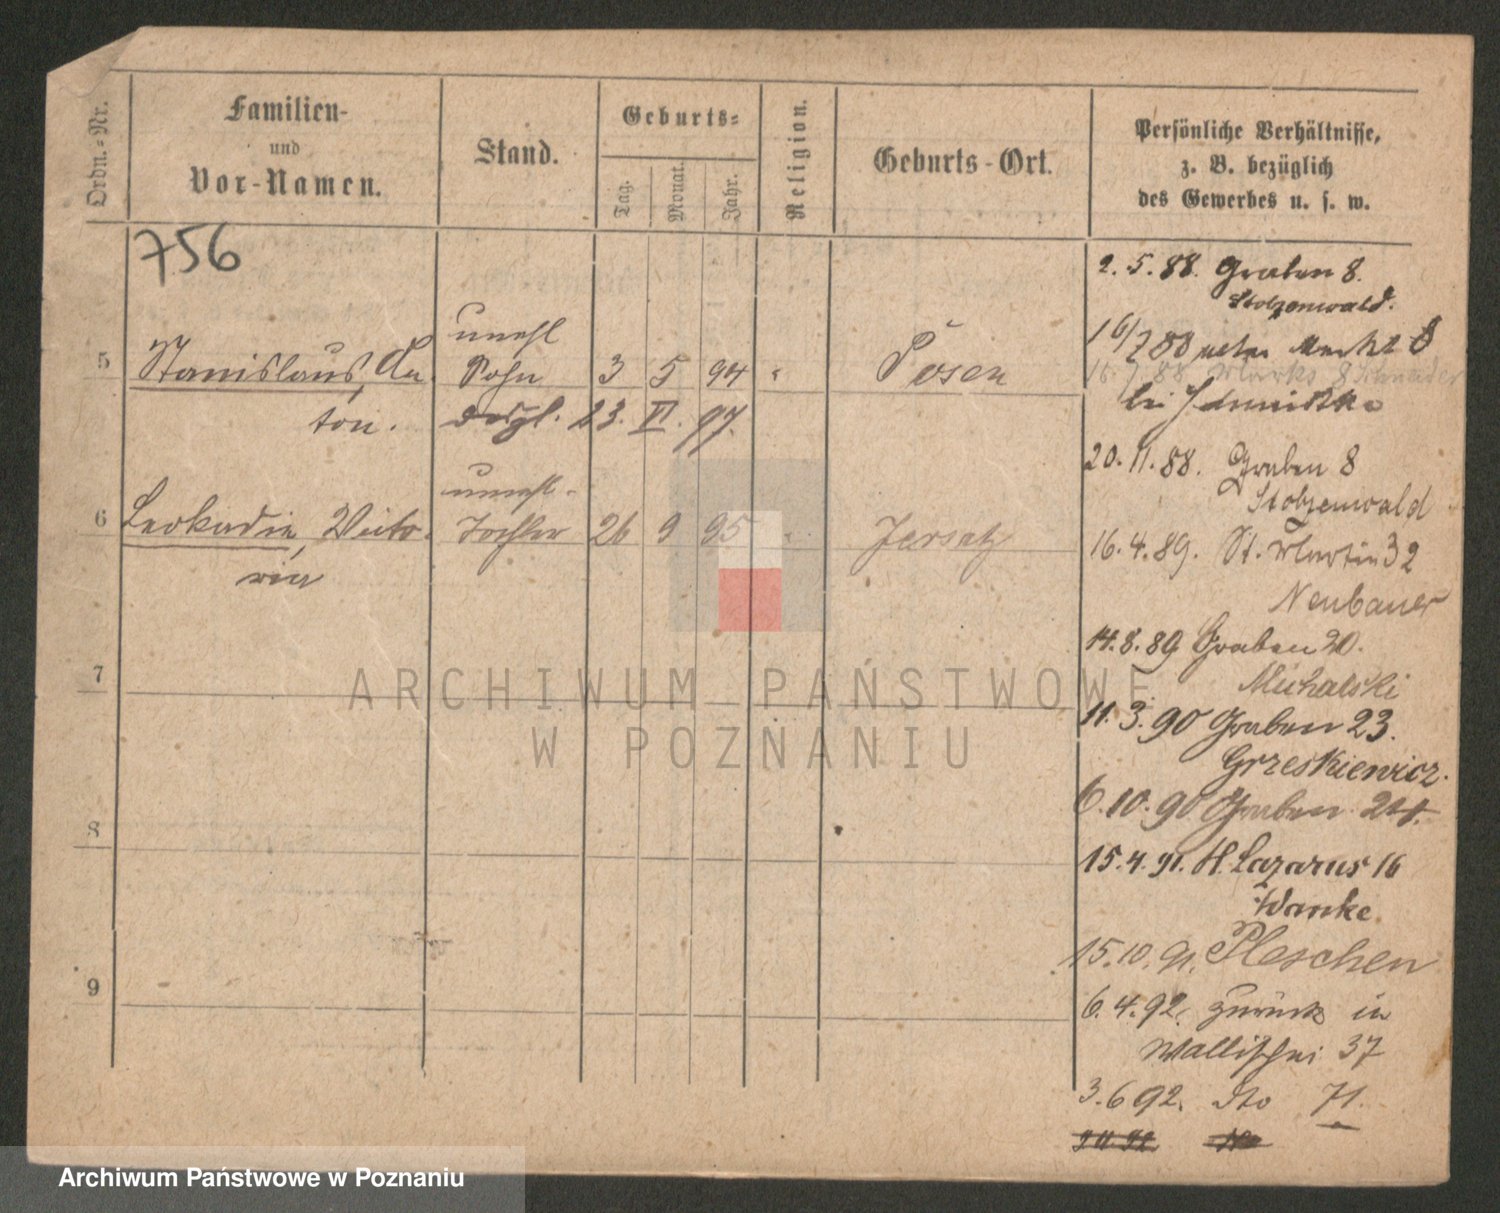 Ordn.-Nr.
Familien-
und
Vor-Namen.
Stand.
Geburts-
Tag.
Monat.
Jahr.
Religion.
Geburts-Ort.
Persönliche Verhältnisse,
z. B. bezüglich
des Gewerbes u. s. w.
756
5
Stanislaus, An
ton.
unehl
Sohn
3 5 94
Posen
desgl. 23. VI. 97.
6
Leokadia, Victo-
ria
unehl.
Tochter
26 9 95
Jersitz
7
8
9
2. 5. 88. Graben 8.
Stolzenwald.
16/7 88 Markt 8
16. 7. 88 Markt 8 Schneider
bei
20. 11. 88. Graben 8
Stolzenwald
16. 4. 89. St. Martin 32
Neubauer
14. 8. 89 Graben 20.
Michalski
11. 3. 90 Graben 23.
Grzeskiewicz.
6. 10. 90 Graben 24.
15. 4. 91. St. Lazarus 16
Wanke
15. 10. 91. Pleschen
6. 4. 92. zurück in
Wallischei 37
3. 6 92. dto 71.
ARCHIWUM PAŃSTWOWE
W POZNANIU
Archiwum Państwowe w Poznaniu